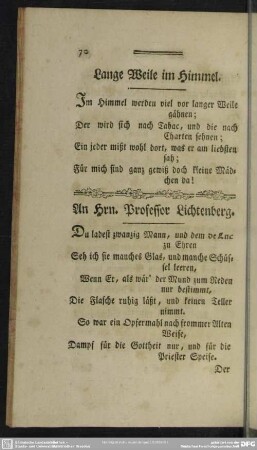 70
Lange Weile im Himmel.
Im Himmel werden viel vor langer Weile
gähnen;
Der wird sich nach Tabac, und die nach
Charten sehnen;
Ein jeder mißt wohl dort, was er am liebsten
sah;
Für mich sind ganz gewiß doch kleine Mäd-
chen da!
An Hrn. Professor Lichtenberg.
Du ladest zwanzig Mann, und dem de Luc
zu Ehren
Seh ich sie manches Glas, und manche Schüs-
sel leeren,
Wenn Er, als wär' der Mund zum Reden
nur bestimmt,
Die Flasche ruhig läßt, und keinen Teller
nimmt.
So war ein Opfermahl nach frommer Alten
Weise,
Dampf für die Gottheit nur, und für die
Priester Speise.
Der